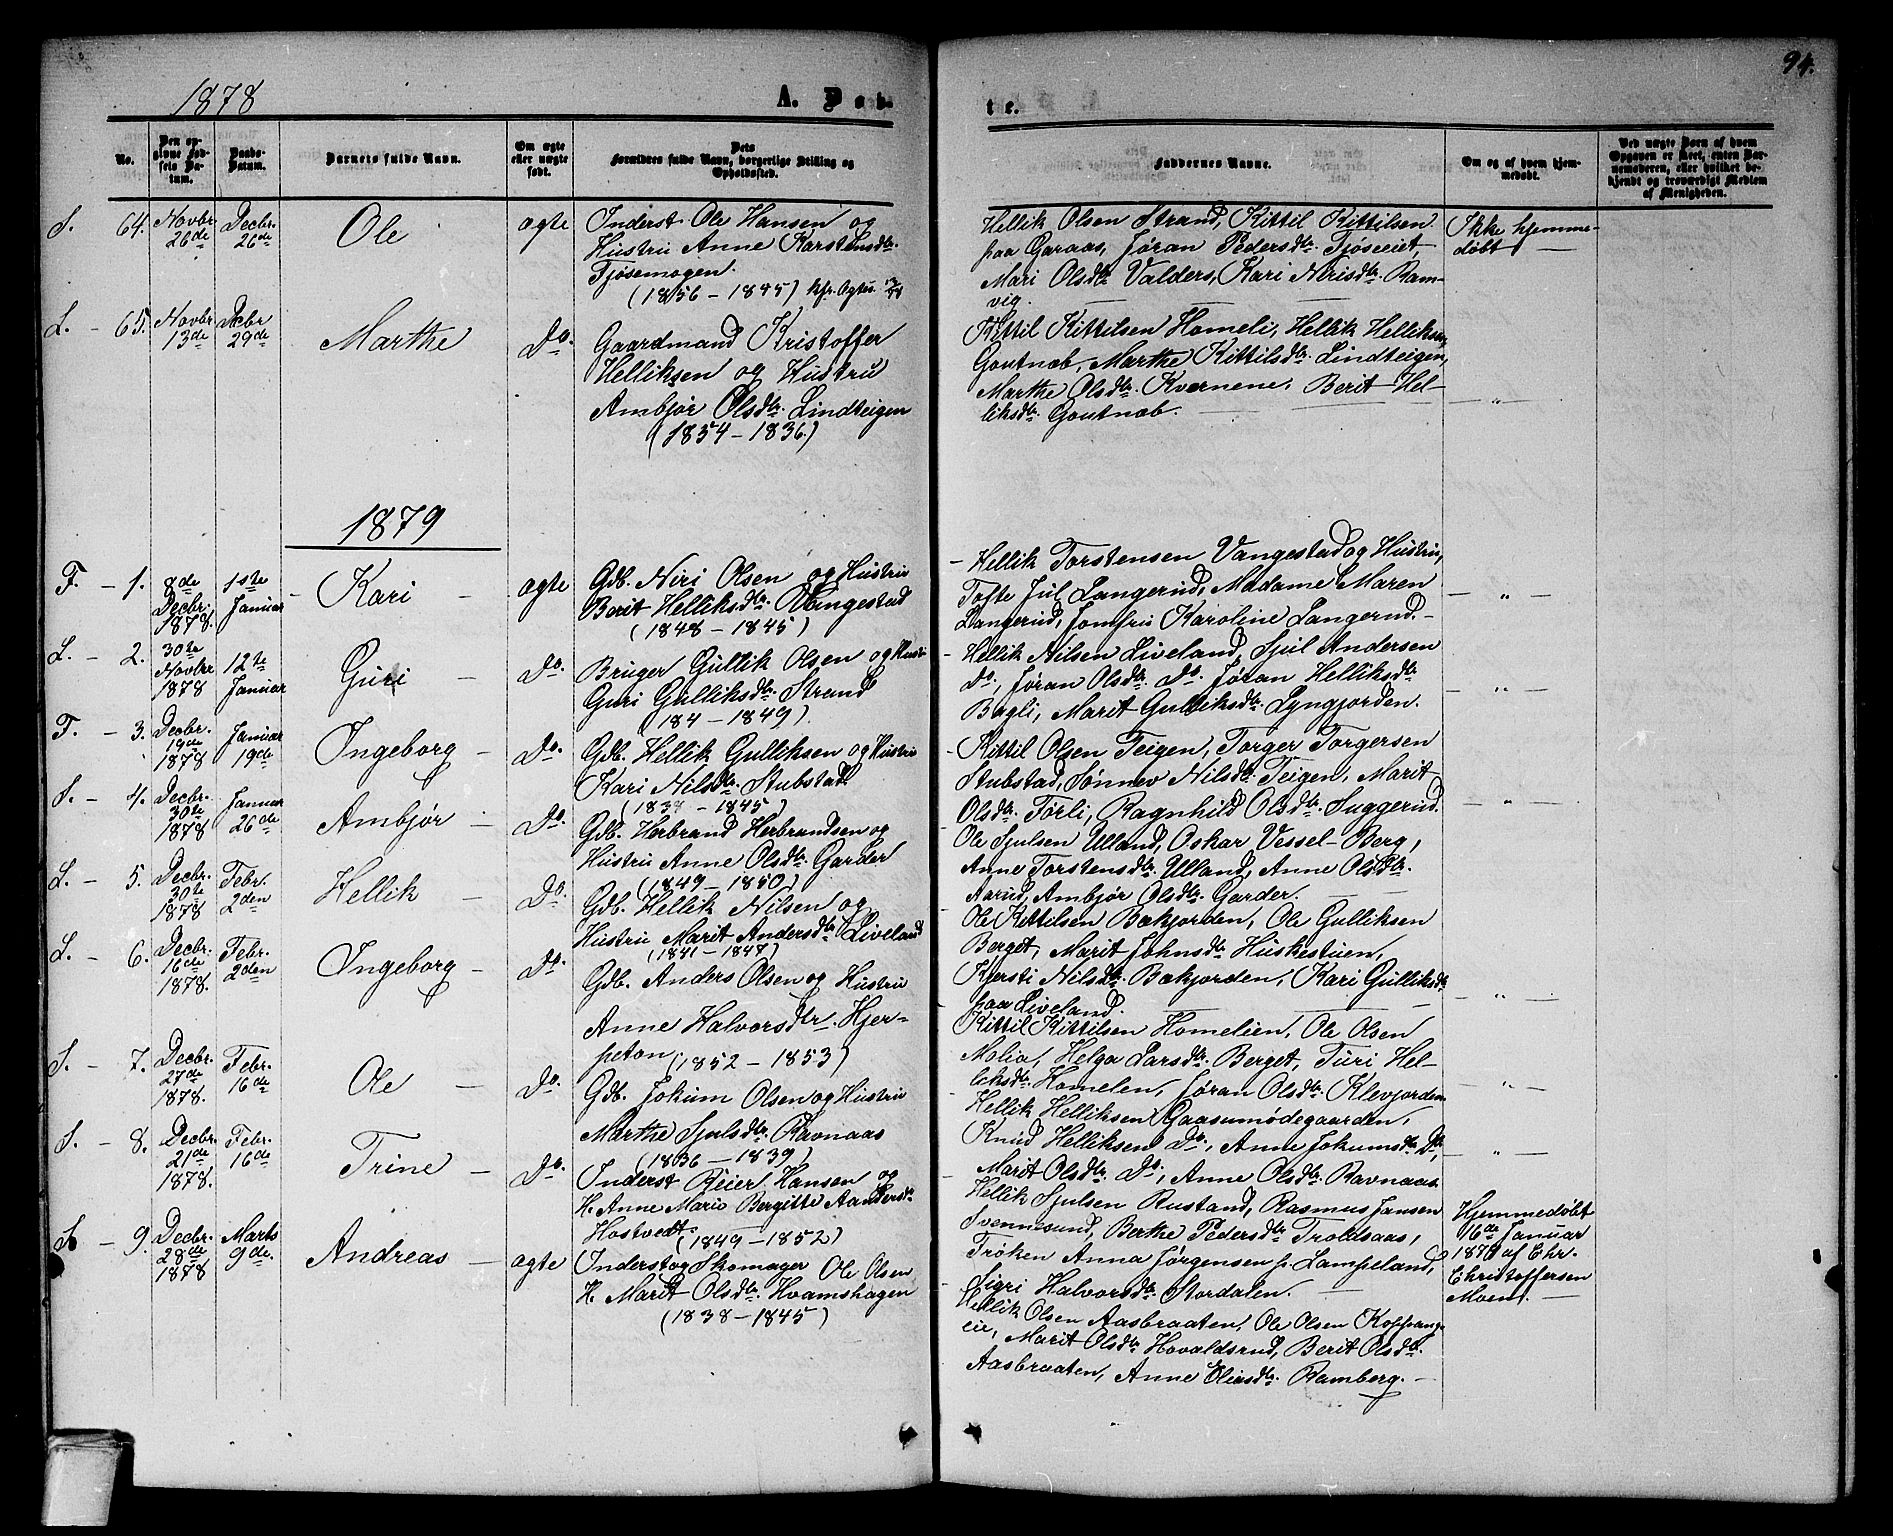 94.
1878
A. Døb-
te.
No.
Den opgivne Fødsels Datum.
Daabs-Datum.
Barnets fulde Navn.
Om ægte eller uægte født.
Dets Forældres fulde Navn, borgerlige Stilling og Opholdssted.
Faddernes Navne.
Om og af hvem hjemmedøbt.
Ved uægte Børn af hvem Opgaven er skeet, enten Barnemoderen, eller hvilket bekjendt og troværdigt Medlem af Menigheden.
S. 64. Novbr. 26de
Decbr. 26de
Ole
ægte
Inderst Ole Hansen og
Hustru Anne Karstensdtr.
Tjøsemogen.
(1856 – 1845)
Hellik Olsen Strand, Kittil Kittilsen
paa Garaas, Jøran Pedersdtr. Tjøseeiet,
Mari Olsdtr. Valders, Kari Nirisdtr. Ramvig.
Ikke hjemmedøbt
L. – 65. Novbr. 13de
Decbr 29de
Marthe
Do.
Gaardmand Kristoffer
Helliksen og Hustru
Ambjør Olsdtr. Lindteigen
(1834 – 1836.)
Kittil Kittilsen Homeli, Hellik Helliksen
Goutnæb, Marthe Kittilsdtr. Lindteigen,
Marthe Olsdtr. Kvernene, Berit Hel-
liksdtr. Goutnæb.
— „ —
1879
F. – 1. 8de Decbr. 1878.
1ste Januar
Kari
ægte
Gdb. Niri Olsen og Hustru
Berit Helliksdtr. Vangestad
(1848 – 1845)
Hellik Torstensen Vangestad og Hustru,
Tofte Jul Langerud, Madame Maren
Langerud, Jomfru Karoline Langerud.
— „ —
L. – 2. 30te Novbr 1878
12te Januar
Guri
Do.
Bruger Gullik Olsen og Hustru
Guri Gulliksdtr. Strand
(184 – 1849).
Hellik Nilsen Liveland, Sjul Andersen
Do., Jøran Olsdtr. Do. Jøran Helliksdtr
Bagli, Marit Gulliksdtr. Lyngjorden.
— „ —
F. – 3. Decbr. 19de 1878
Januar 19de
Ingeborg
Do.
Gdb. Hellik Gulliksen og Hustru
Kari Nilsdtr. Stubstad
(1834 – 1845)
Kittil Olsen Teigen, Torger Torgersen
Stubstad, Sønnev Nilsdtr. Teigen, Marit
Olsdtr. Torli, Ragnhild Olsdtr. Suggerud.
— „ —
S. – 4. Decbr. 30te 1878
Januar 26de
Ambjør
Do.
Gdb. Herbrand Herbrandsen og
Hustru Anne Olsdtr. Garder
(1849 – 1850)
Ole Sjulsen Ulland, Oskar Vessel-Berg,
Anne Torstensdtr. Ulland, Anne Olsdtr.
Aarud, Ambjør Olsdtr. Garder.
L. – 5. Decbr. 30te 1878
Febr. 2den
Hellik
Do.
Gdb. Hellik Nilsen og
Hustru Marit Andersdtr Liveland
(1841 – 1847)
Ole Kittilsen Bækjorden, Ole Gulliksen
Berget, Marit Johnsdtr. Huskestuen,
Kjersti Nilsdtr. Bækjorden, Kari Gulliksdtr
paa Liveland.
— „ —
L. – 6. Decbr. 16de 1878.
Febr. 2den
Ingeborg
Do.
Gdb. Anders Olsen og Hustru
Anne Halvorsdtr. Hjer-
peton (1852 – 1853)
Kittil Kittilsen Homelien, Ole Olsen
Molia, Helga Larsdtr. Berget, Turi Hel-
liksdtr. Homelen, Jøran Olsdtr. Klevjorden
— „ —
S. – 7. Decbr. 27de 1878.
Febr. 16de
Ole
Do.
Gdb. Jokum Olsen og Hustru
Marthe Sjulsdtr. Ravnaas
(1836 – 1839)
Hellik Helliksen Gaasumødegaarden,
Knud Helliksen Do., Anne Jokumsdtr. Do,
Marit Olsdtr. Do., Anne Olsdtr. Ravnaas.
— „ —
S. – 8. Decbr. 21de 1878.
Febr. 16de
Trine
Do.
Inderst Reier Hansen og
H. Anne Marie Bergitte Aandersdtr
Hostvedt (1849 – 1852)
Hellik Sjulsen Rustand, Rasmus Jansen
Svennesund, Berthe Pedersdtr Troldsaas,
Frøken Anna Jørgensen p. Lampeland,
Sigri Halvorsdtr. Stordalen.
Hjemmedøbt
16de Januar
1879 af Chr.
Christoffersen
Moen.
S. – 9. Decbr. 28de 1878
Marts 9de.
Andreas
ægte
Inderst og Skomager Ole Olsen
H. Marit Olsdtr. Hvamshagen
(1838 – 1845)
Hellik Olsen Aasbraaten, Ole Olsen Koppange
eie, Marit Olsdtr. Hovaldsrud, Berit Olsdtr.
Aasbraaten, Anne Eliasdtr. Ramberg.